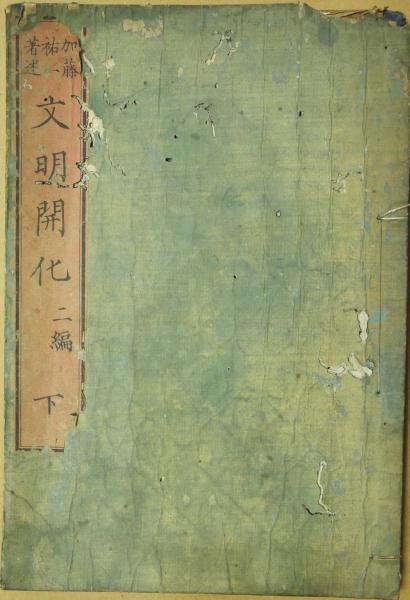 加藤
祐一
著述
文明開化 二編 下